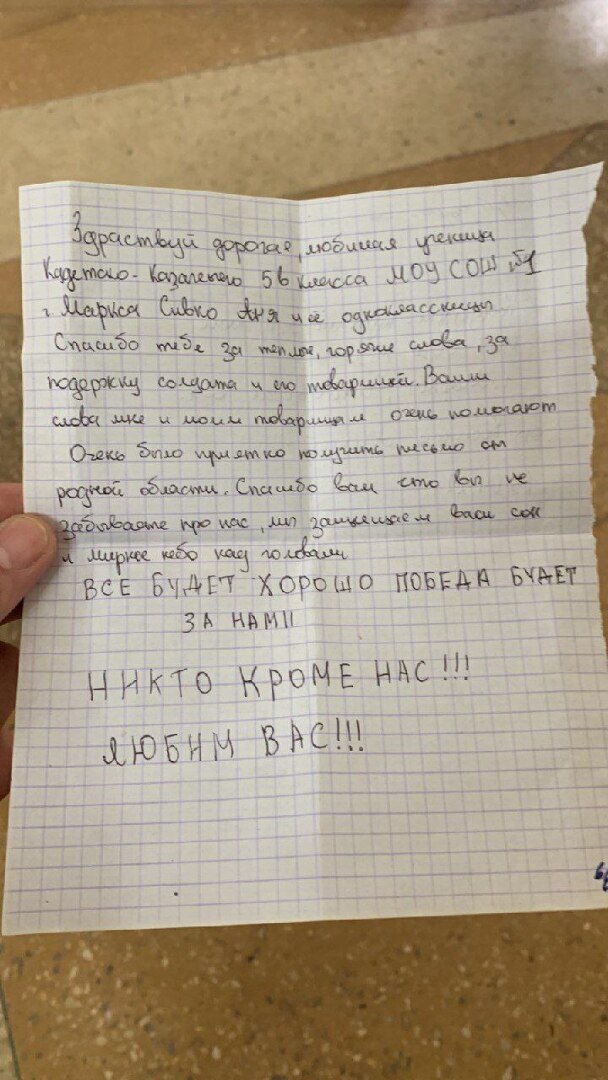 Здраствуй дорогая, любимая ученица
Кадетско-Казачьего 5в класса МОУ СОШ №1
г. Маркса Сивко Аня и её одноклассницы
Спасибо тебе за теплые, горячие слова, за
подержку солдата и его товарищей. Ваши
слова мне и моим товарищам очень помогают
Очень было приятно получить письмо от
родной области. Спасибо вам что вы не
забываете про нас, мы защищаем ваш сон
и мирное небо над головами
ВСЕ БУДЕТ ХОРОШО ПОБЕДА БУДЕТ
ЗА НАМИ
НИКТО КРОМЕ НАС!!!
ЛЮБИМ ВАС!!!